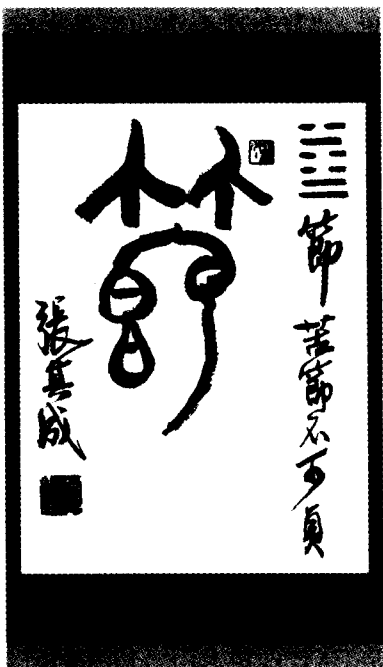 節 苦節不可貞
節
張其成